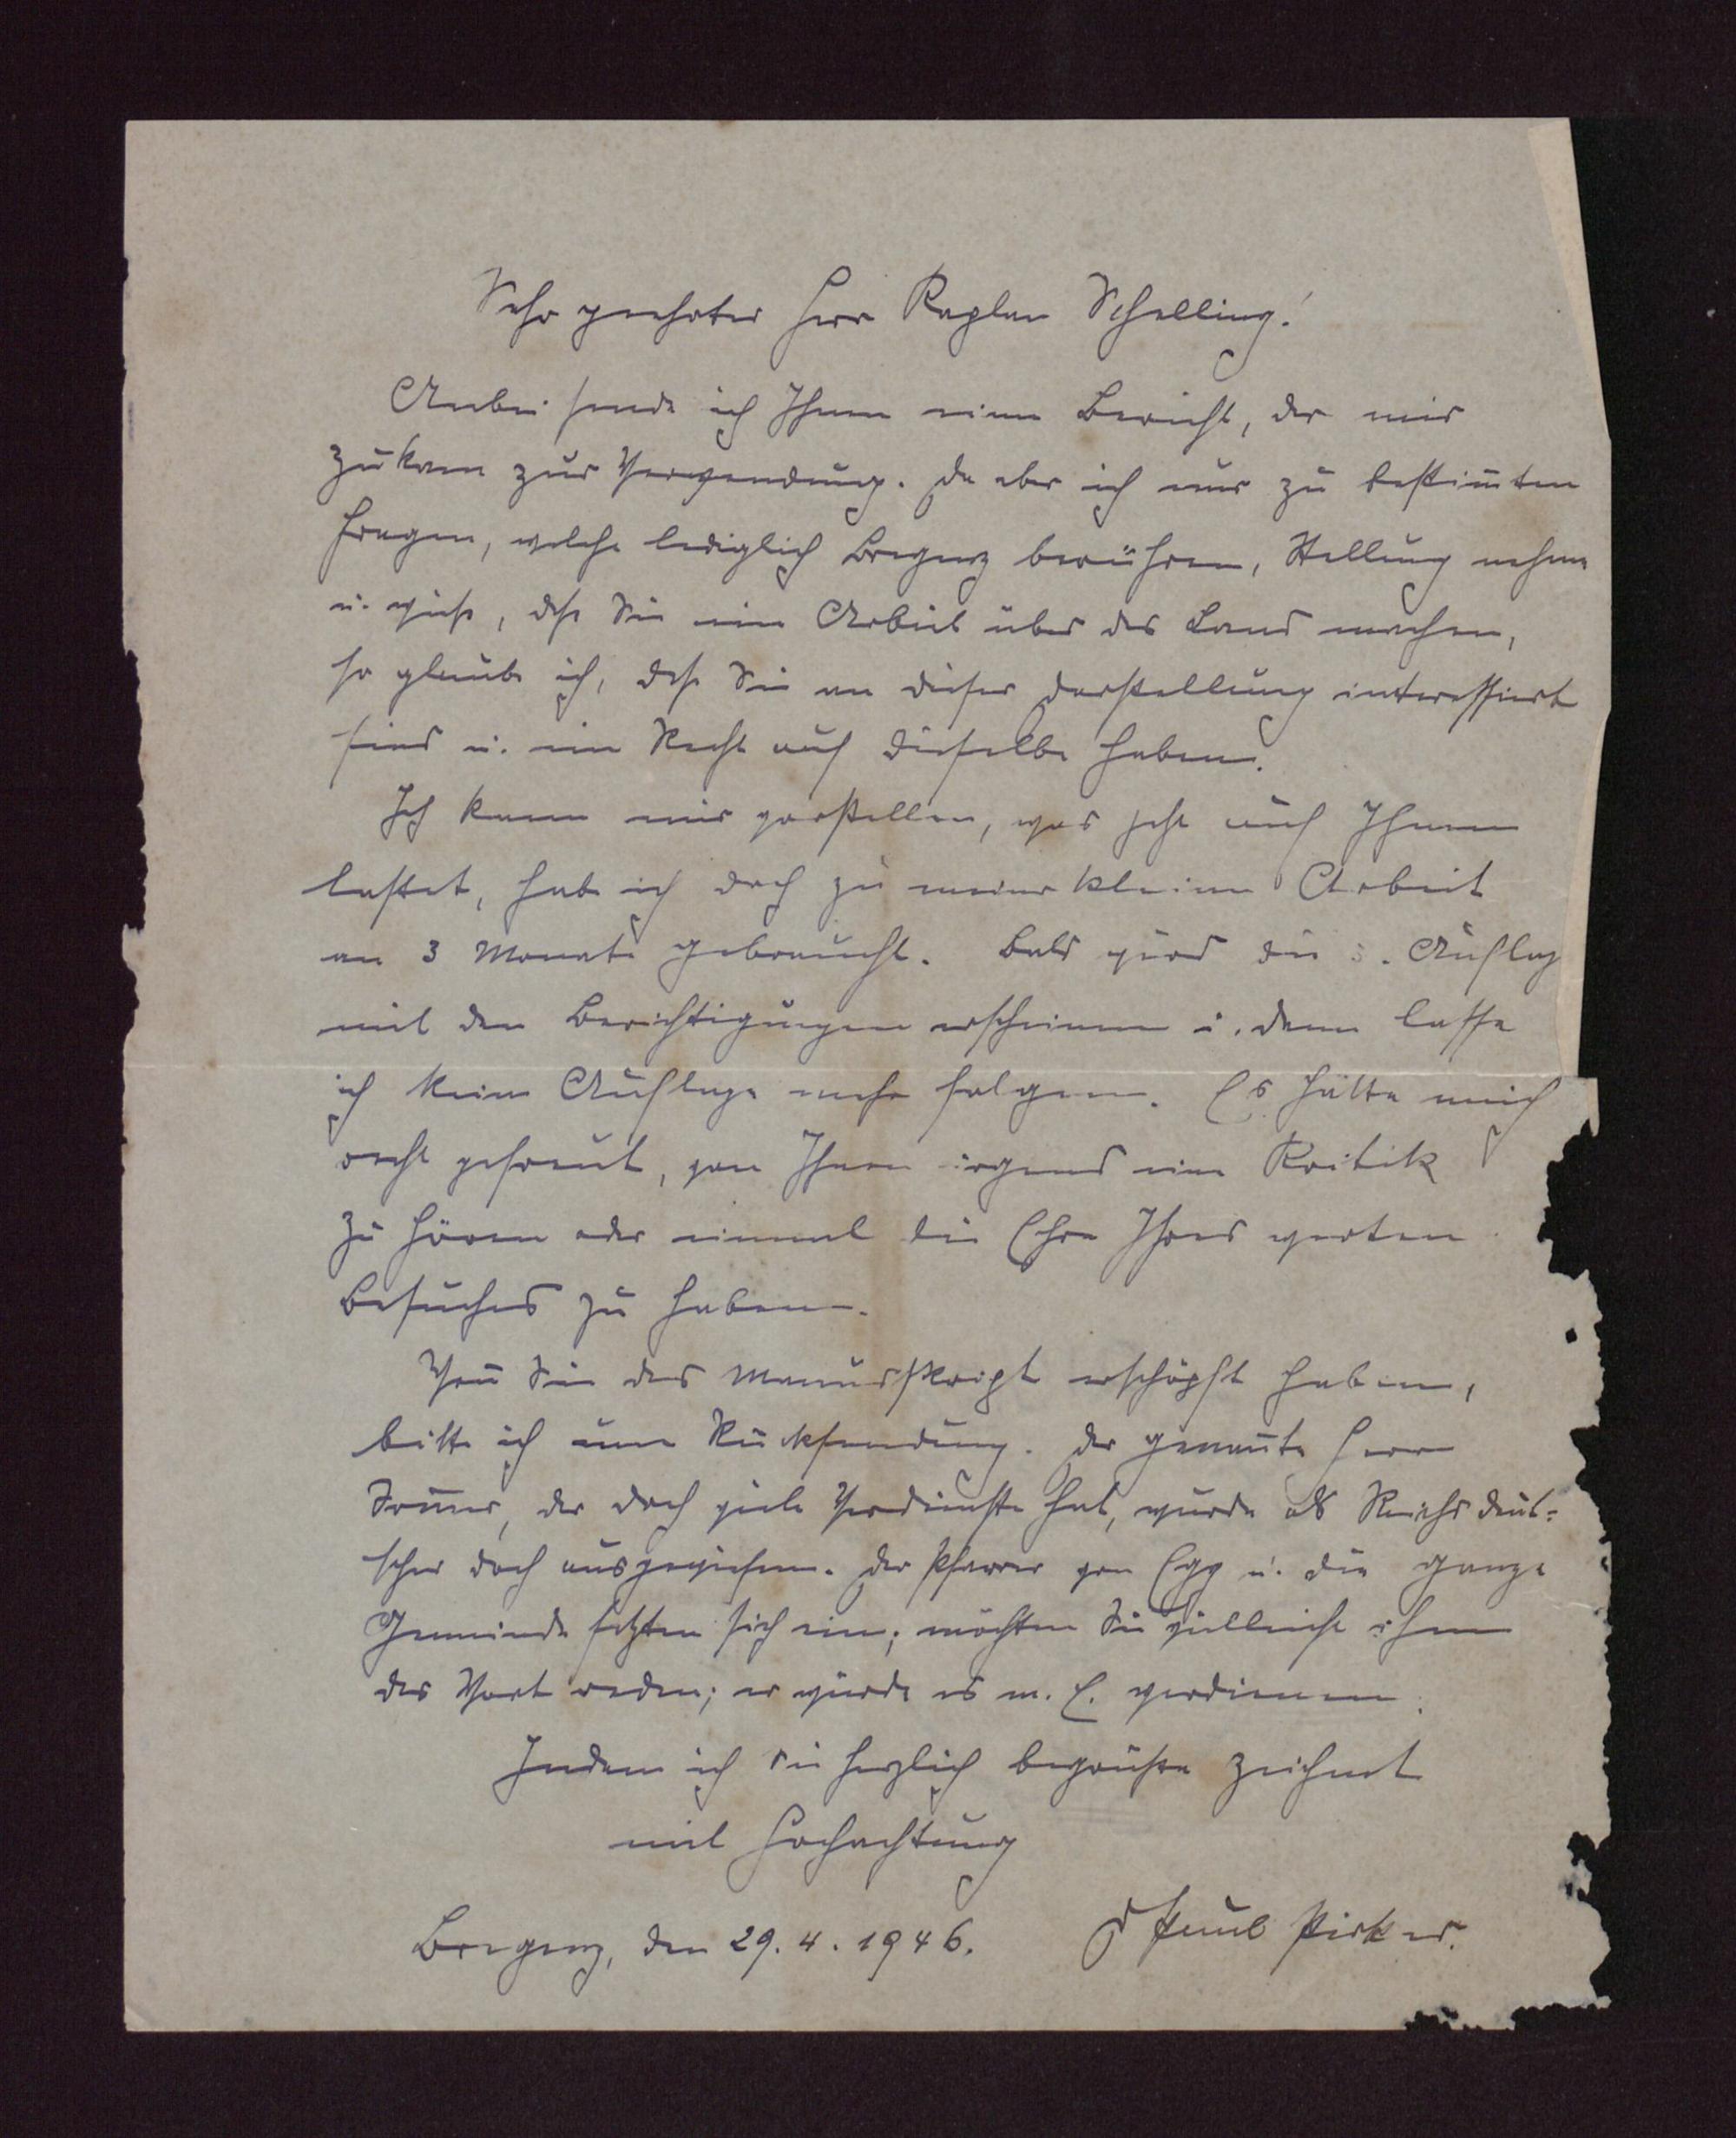 Sehr geehrter Herr Kaplan Schelling!
Anbei sende ich Ihnen einen Bericht, der mir
zukam zur Verwendung. Da aber ich nur zu bestim̄ten
Fragen, welche lediglich Bregenz berühren, Stellung nehme
u. weiß, daß Sie eine Arbeit über das Land machen,
so glaube ich, daß Sie an dieser Darstellung interessiert
sind u. ein Recht auf dieselbe haben.
Ich kann mir vorstellen, was jetzt auf Ihnen
lastet, habe ich doch zu meiner kleinen Arbeit
an 3 Monate gebraucht. Bald wird die 3. Auflage
mit den Berichtigungen erscheinen u. dann lasse
ich keine Auflage mehr folgen. Es hätte mich
recht gefreut, von Ihnen irgend eine Kritik
zu hören oder einmal die Ehre Ihres werten
Besuches zu haben.
Wen̄ Sie das Manuskript erschöpft haben,
bitte ich um Rücksendung. Der genan̄te Herr
der doch viele Verdienste hat, wurde als Reichsdeut=
scher doch ausgewiesen. Der Pfarrer von Egg u. die ganze
Gemeinde setzten sich ein; möchten Sie vielleicht ihm
das Wort reden; er würde es m. E. verdienen.
Indem ich Sie herzlich begrüße zeichnet
mit Hochachtung
Bregenz, den 29.4.1946. Paul Pirker.